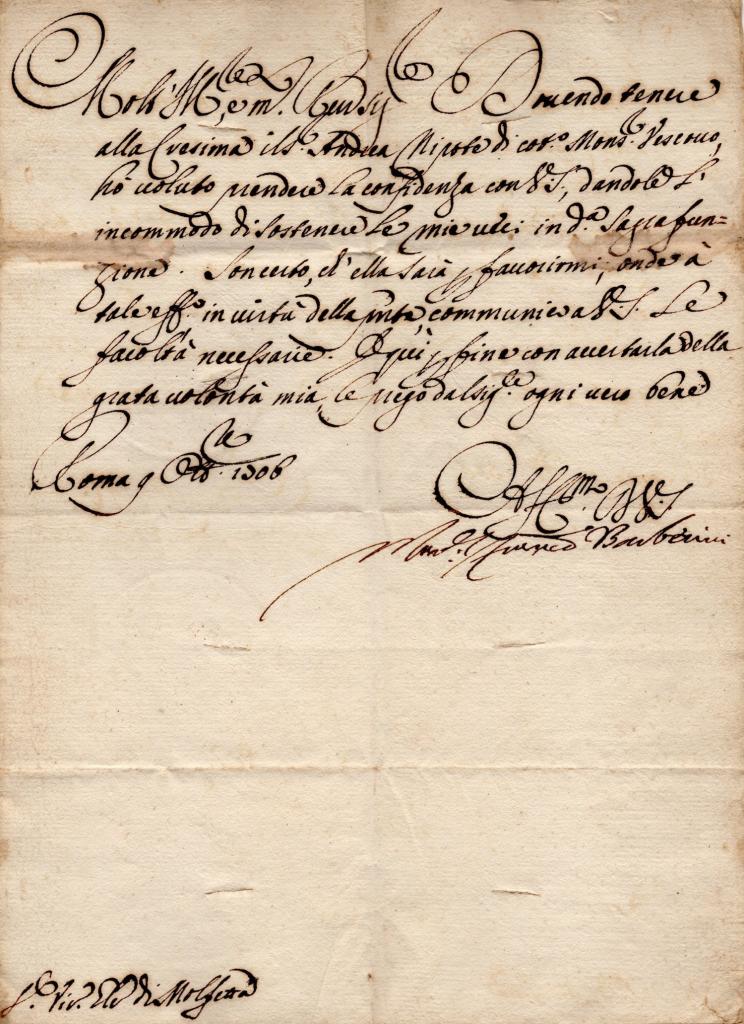 Molt' Ill.re e m.to Rev. Sig.re Dovendo tenere
alla Cresima il S.r Andrea Nipote di cot.o Mons.r Vescovo,
hò voluto prendere la confidenza con V.S., dandole l'
incommodo di sostenere le mie veci in d.a Sagra fun=
zione. Son certo, ch'ella sarà p favorirmi, onde à
tale eff.o in virtù della pnte communico a V.S. le
facoltà necessarie. E qui p fine con accertarla della
grata volontà mia, le prego dal Sig.re ogni vero bene
Roma 9 Ott.re 1706
Aff.mo di V.S.
Barberini
di Molfetta